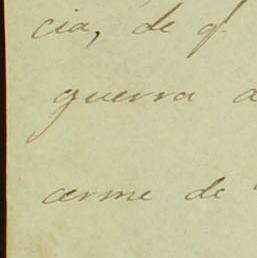 cia, de q.
guerra a
cerme de